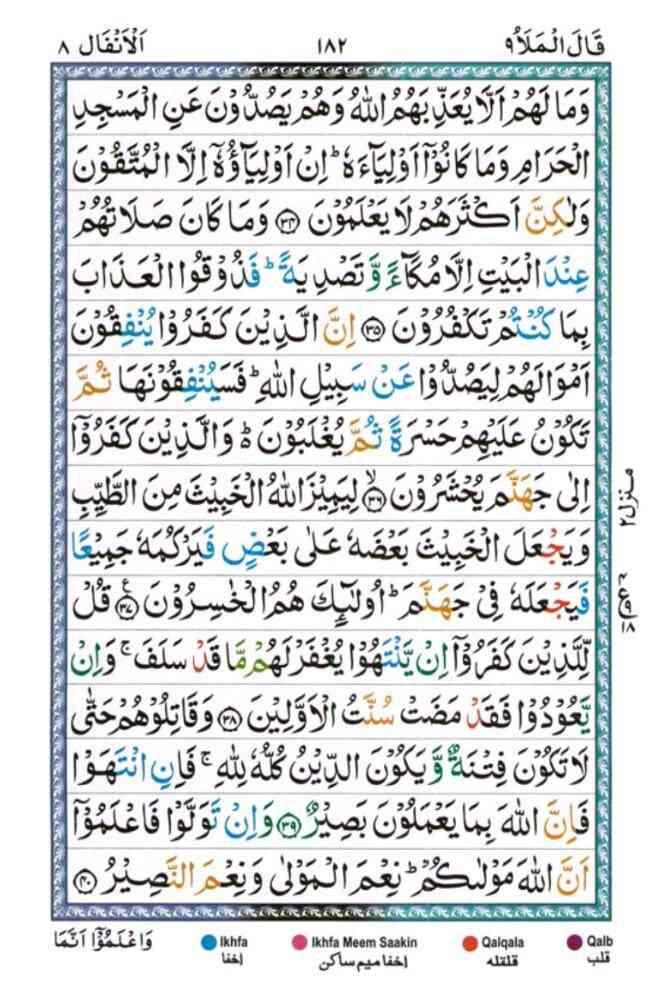 قَالَ الْمَلَاُ ٩
١٨٢
اَلْاَنْفَال ٨
وَمَا لَهُمْ اَلَّا يُعَذِّبَهُمُ اللّٰهُ وَهُمْ يَصُدُّوْنَ عَنِ الْمَسْجِدِ
الْحَرَامِ وَمَا كَانُوْۤا اَوْلِيَآءَهٗ ؕ اِنْ اَوْلِيَآؤُهٗۤ اِلَّا الْمُتَّقُوْنَ
وَلٰكِنَّ اَكْثَرَهُمْ لَا يَعْلَمُوْنَ ﴿۳۴﴾ وَمَا كَانَ صَلَاتُهُمْ
عِنْدَ الْبَيْتِ اِلَّا مُكَآءً وَّ تَصْدِيَةً ؕ فَذُوْقُوا الْعَذَابَ
بِمَا كُنْتُمْ تَكْفُرُوْنَ ﴿۳۵﴾ اِنَّ الَّذِيْنَ كَفَرُوْا يُنْفِقُوْنَ
اَمْوَالَهُمْ لِيَصُدُّوْا عَنْ سَبِيْلِ اللّٰهِ ؕ فَسَيُنْفِقُوْنَهَا ثُمَّ
تَكُوْنُ عَلَيْهِمْ حَسْرَةً ثُمَّ يُغْلَبُوْنَ ؕ۬ وَالَّذِيْنَ كَفَرُوْۤا
اِلٰى جَهَنَّمَ يُحْشَرُوْنَ ﴿۳۶﴾ۙ لِيَمِيْزَ اللّٰهُ الْخَبِيْثَ مِنَ الطَّيِّبِ
وَيَجْعَلَ الْخَبِيْثَ بَعْضَهٗ عَلٰى بَعْضٍ فَيَرْكُمَهٗ جَمِيْعًا
فَيَجْعَلَهٗ فِيْ جَهَنَّمَ ؕ اُولٰٓئِكَ هُمُ الْخٰسِرُوْنَ ﴿۳۷﴾ قُلْ
لِّلَّذِيْنَ كَفَرُوْۤا اِنْ يَّنْتَهُوْا يُغْفَرْ لَهُمْ مَّا قَدْ سَلَفَ ۚ وَاِنْ
يَّعُوْدُوْا فَقَدْ مَضَتْ سُنَّتُ الْاَوَّلِيْنَ ﴿۳۸﴾ وَقَاتِلُوْهُمْ حَتّٰى
لَا تَكُوْنَ فِتْنَةٌ وَّ يَكُوْنَ الدِّيْنُ كُلُّهٗ لِلّٰهِ ۚ فَاِنِ انْتَهَوْا
فَاِنَّ اللّٰهَ بِمَا يَعْمَلُوْنَ بَصِيْرٌ ﴿۳۹﴾ وَاِنْ تَوَلَّوْا فَاعْلَمُوْۤا
اَنَّ اللّٰهَ مَوْلٰىكُمْ ؕ نِعْمَ الْمَوْلٰى وَنِعْمَ النَّصِيْرُ ﴿۴۰﴾
منزل ٢
وَاعْلَمُوْۤا اَنَّمَا
Ikhfa
اخفا
Ikhfa Meem Saakin
اخفا میم ساکن
Qalqala
قلقله
Qalb
قلب